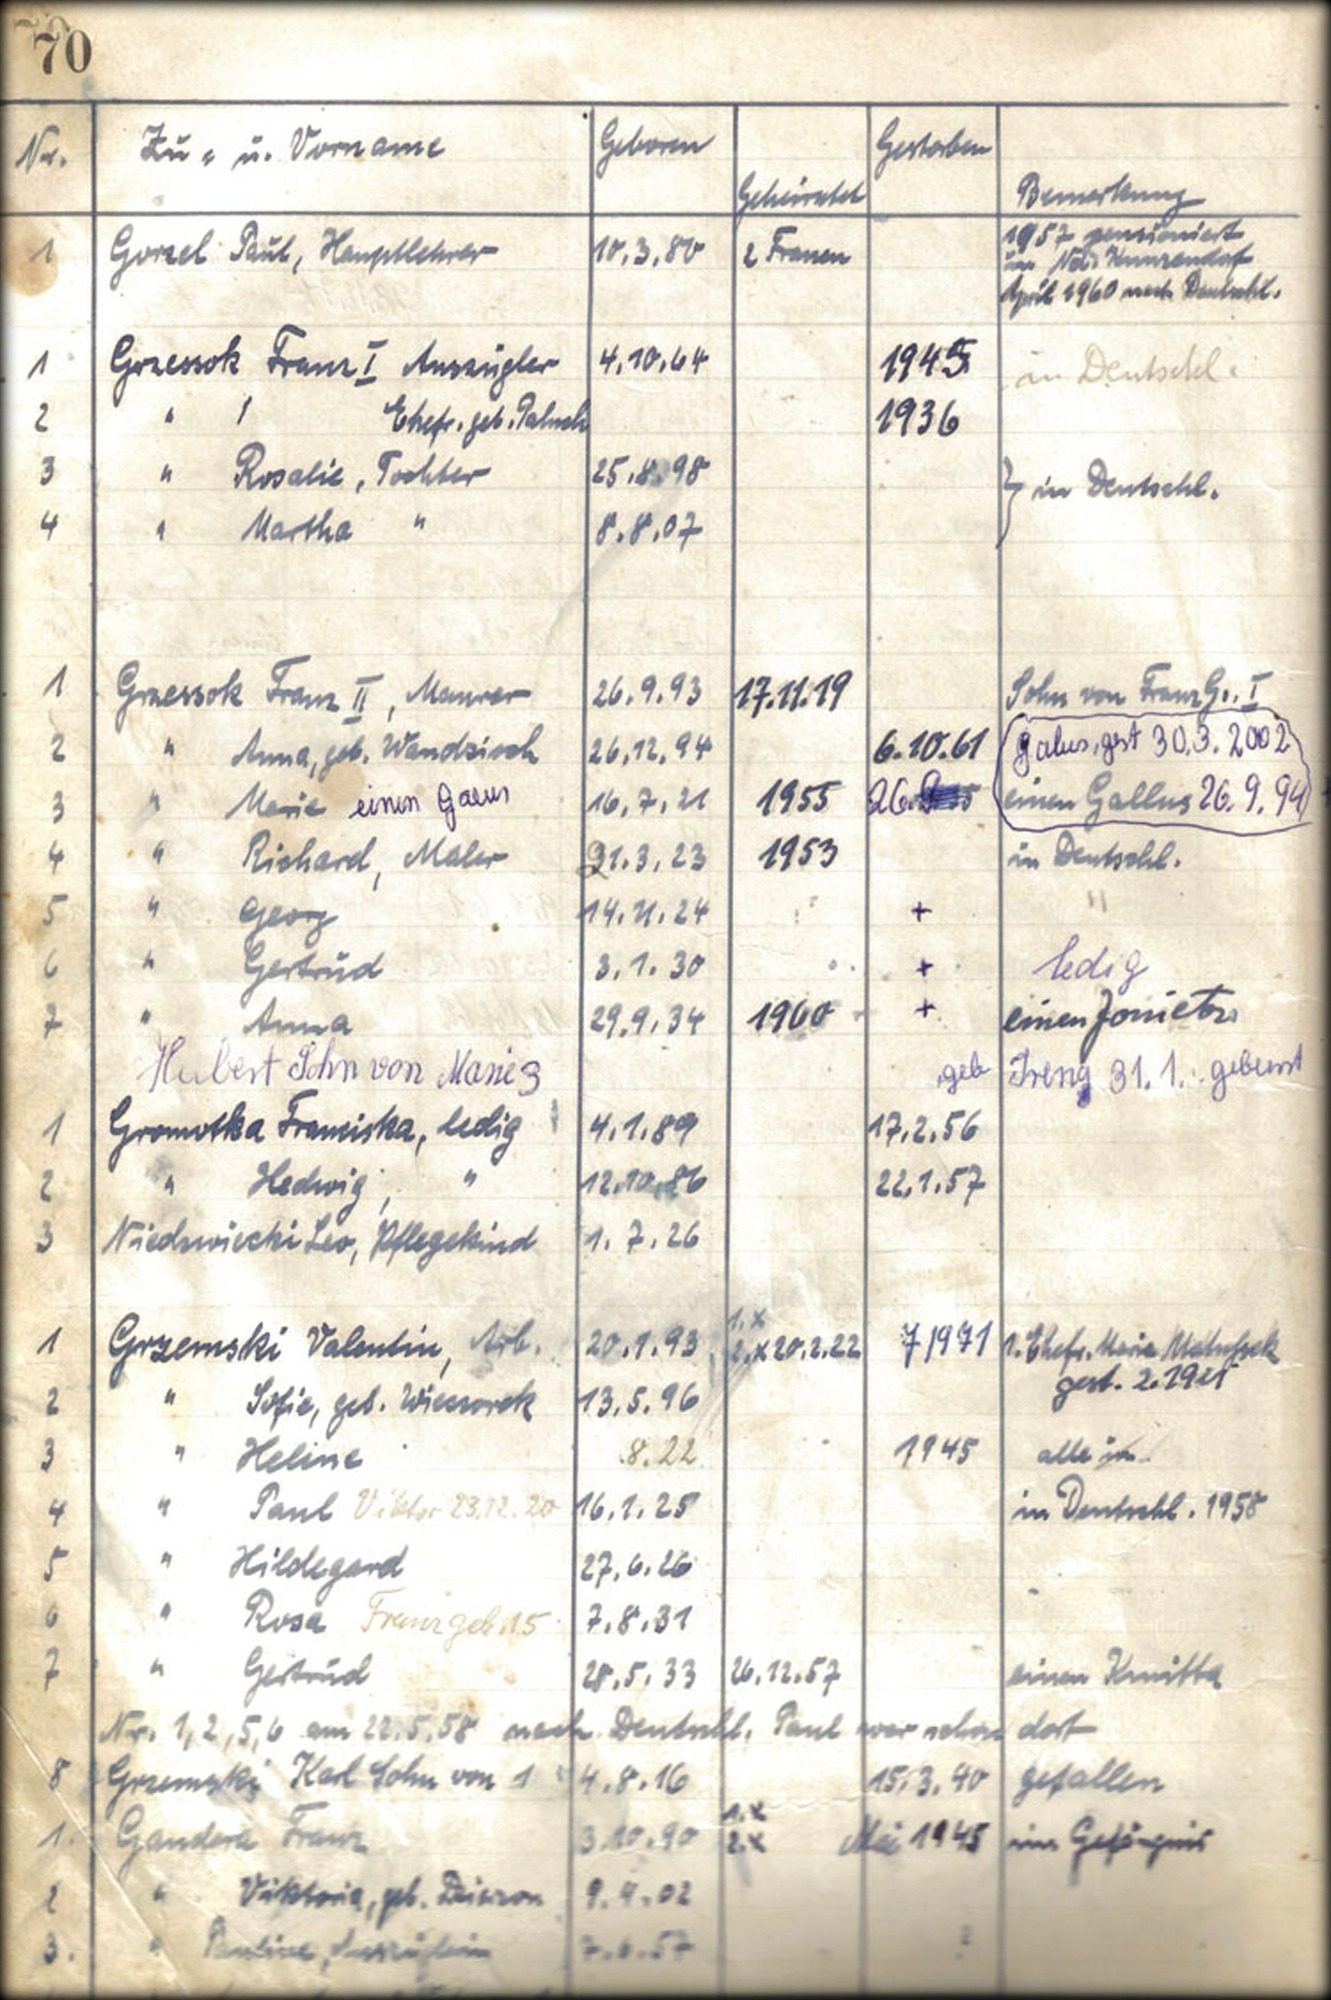 70
Nr. Zu- u. Vorname Geboren Geheiratet Gestorben Bemerkung
1 Gorzel Paul, Hauptlehrer 10.3.80 2 Frauen 1957 pensioniert
in Ndr. Kunzendorf
April 1960 nach Deutschl.
1 Grzessok Franz I Auszügler 4.10.64 1945 in Deutschl.
2 " Ehefr. geb. Paluch 1936
3 " Rosalie, Tochter 25.8.98 } in Deutschl.
4 " Martha " 8.8.07
1 Grzessok Franz II, Maurer 26.9.93 17.11.19 Sohn von Franz G. I
2 " Anna, geb. Wandzioch 26.12.94 6.10.61 galus, gest 30.3.2002
3 " Marie einen Galus 16.7.21 1955 26. einen Gallus 26.9.94
4 " Richard, Maler 31.3.23 1953 in Deutschl.
5 " Georg 14.11.24 + "
6 " Gertrud 3.1.30 + ledig
7 " Anna 29.9.34 1960 + einen Jonietz
Hubert Sohn von Marie 3 geb 31.1.
1 Gromotka Franziska, ledig 4.1.89 17.2.56
2 " Hedwig, " 12.10.86 22.1.57
3 Niedzwiecki Leo, Pflegekind 1.7.26
1.x
1 Grzemski Valentin, Arb. 20.1.93 2.x 20.2.22 7 1971 1. Ehefr. Marie
gest. 2.1921
2 " Sofie, geb. Wiessorek 13.5.96
3 " Heline 8.22 1945 alle in
4 " Paul Viktor 23.12.20 16.1.25 in Deutschl. 1958
5 " Hildegard 27.6.26
6 " Rosa Franz geb. 15 7.8.31
7 " Gertrud 28.5.33 26.12.57 einen Kmitta
Nr. 1,2,5,6 am 22.5.58 nach Deutschl. Paul war schon dort
8 Grzemski Karl Sohn von 1 4.8.16 15.3.40 gefallen
1.x
1. Gandera Franz 3.10.90 2.x Mai 1945 im Gefängnis
2 " Viktoria, geb. 9.4.02
3. " Pauline, Auszüglerin 7.6.57